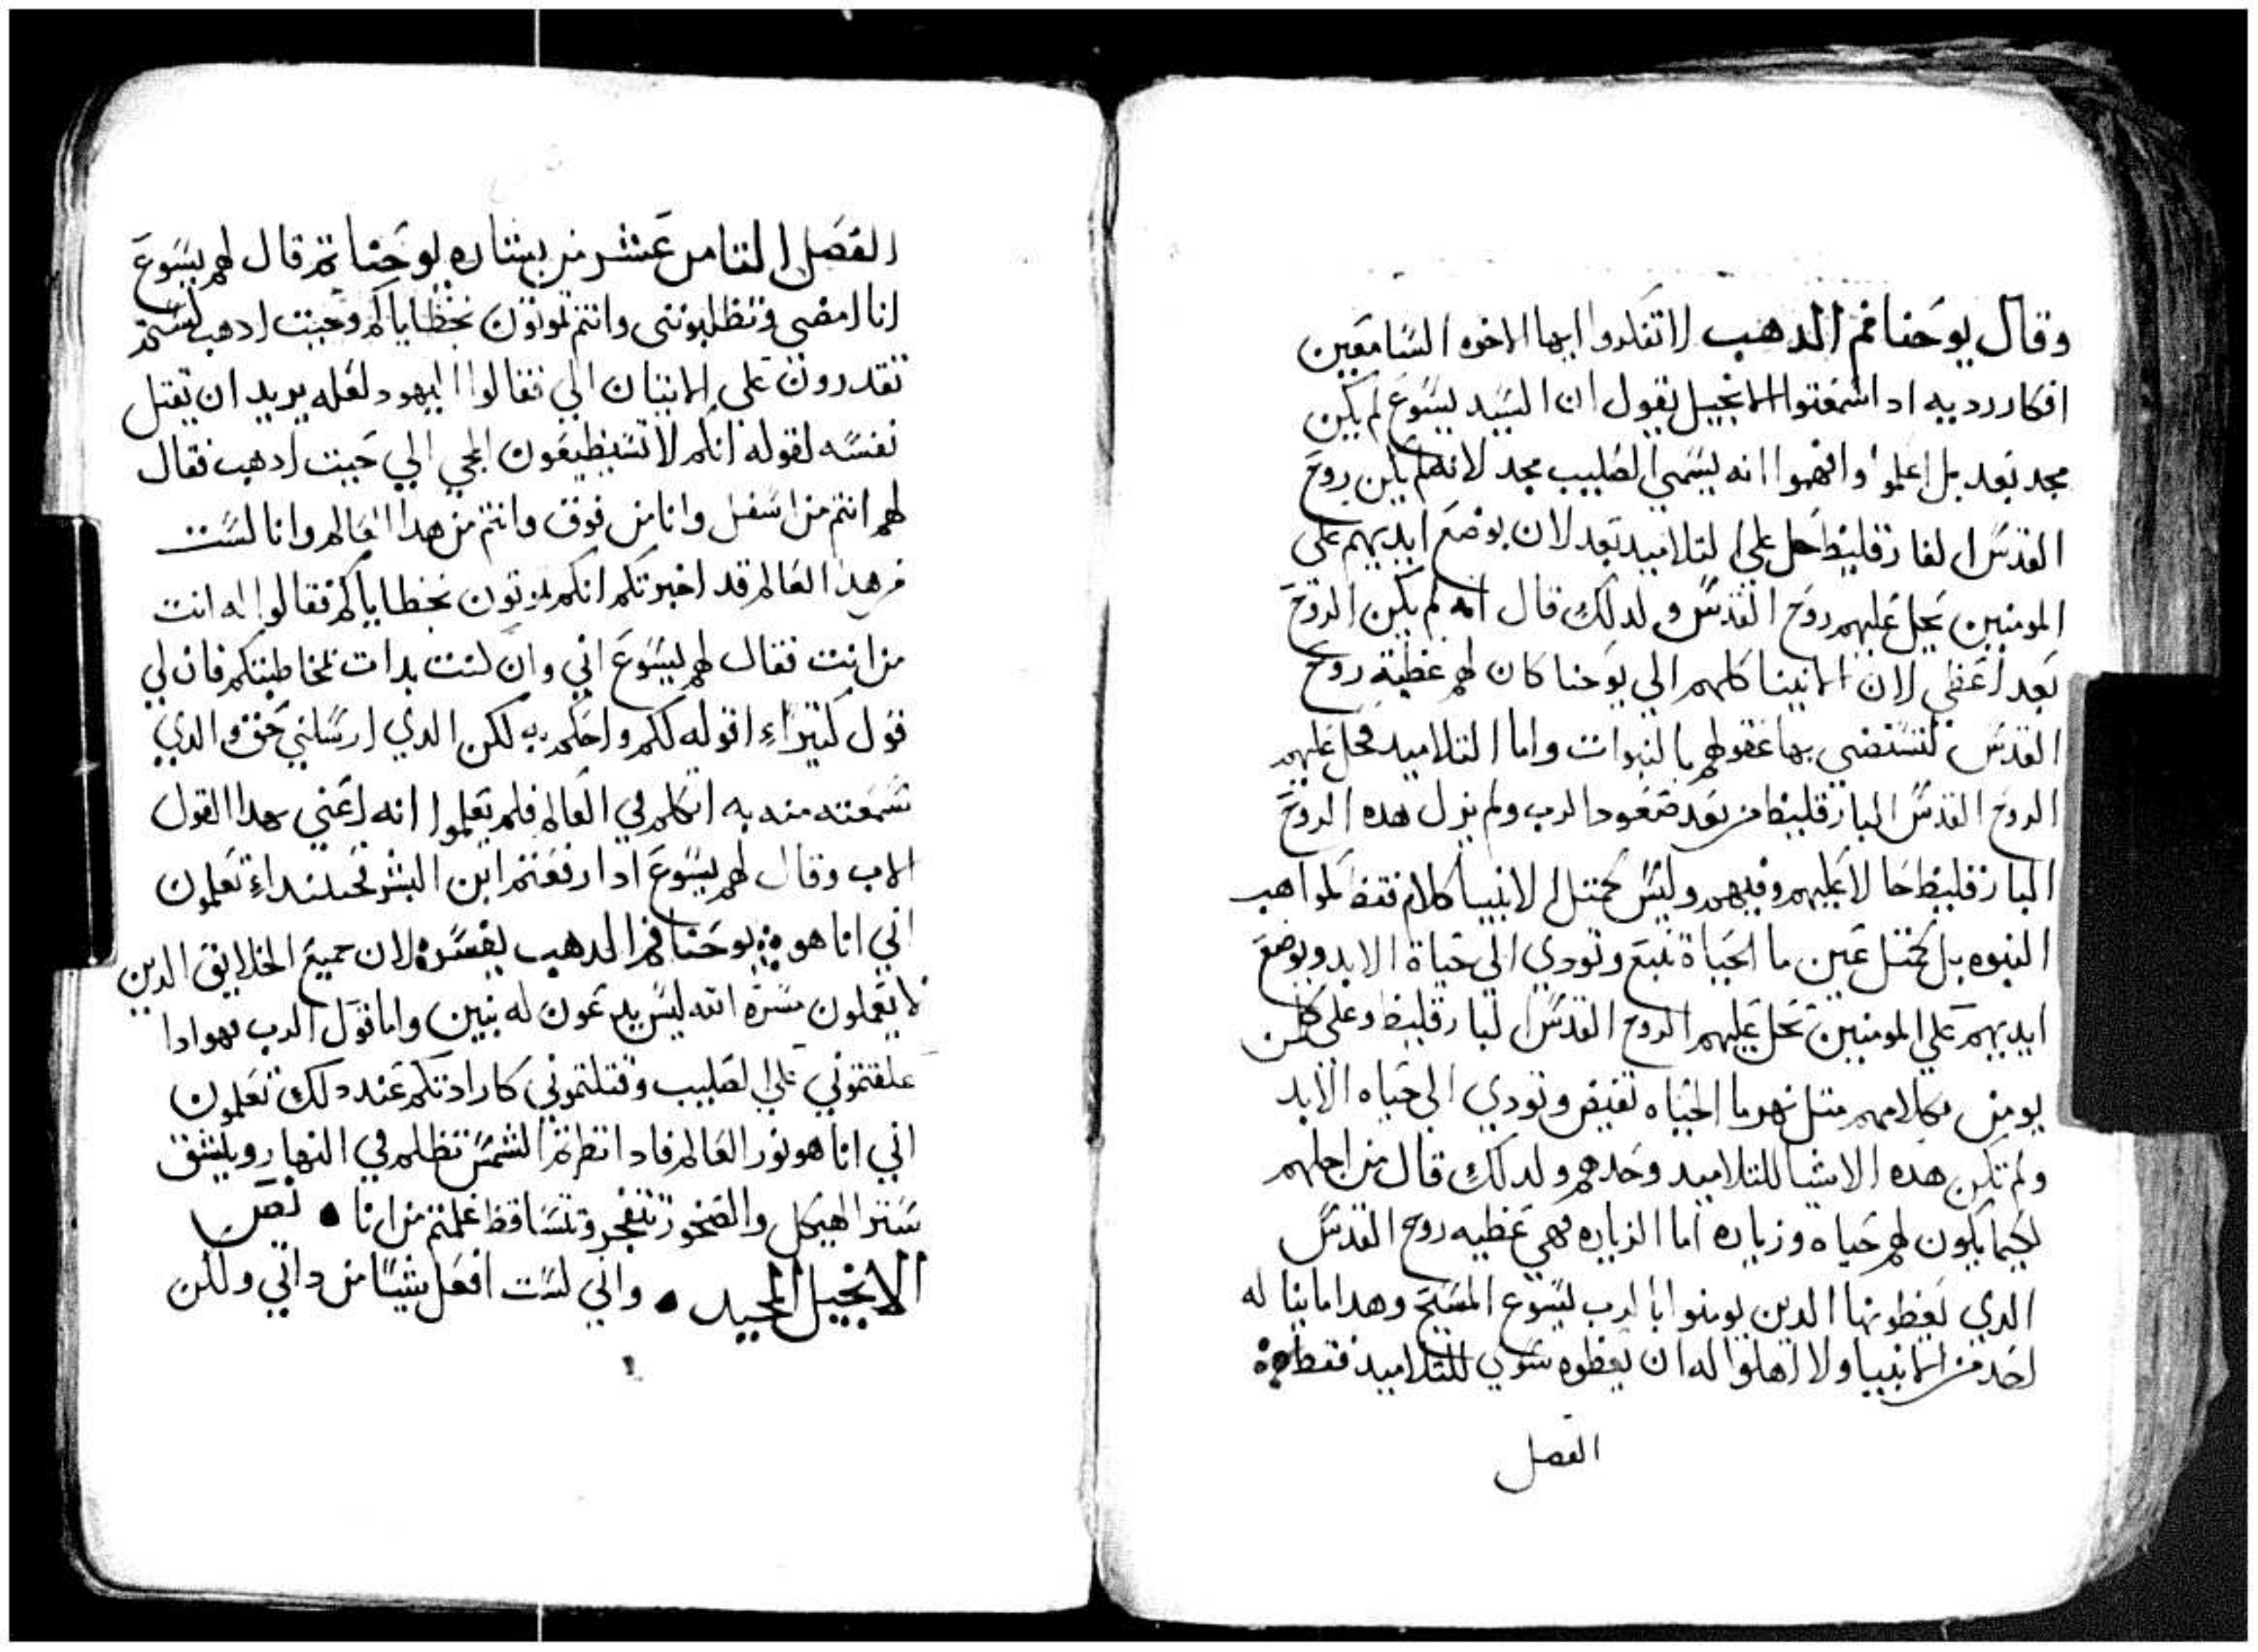 وقال يوحنا فم الدهب لا تفكروا ايها الاخوه السامعين
افكار رديه ادا سمعتوا الانجيل يقول ان السيد يسوع لم يكن
مجد بعد بل اعلموا وافهموا انه يسمي الصليب مجد لانه لم يكن روح
القدس الفارقليط حل علي التلاميد بعد لان بوضع ايديهم علي
المومنين يحل عليهم روح القدس ولدلك قال انه لم يكن الروح
بعد اعطي لان الانبيا كلهم الي يوحنا كان لهم عطية روح
القدس لتستضي بها عقولهم بالنبوات واما التلاميد فحل عليهم
الروح القدس البارقليط من بعد صعود الرب ولم يزل هده الروح
البارقليط حالا عليهم وفيهم وليس كمتل الانبيا كلام فقط لمواهب
النبوه بل كمتل عين ما الحياة تنبع وتودي الي حياة الابد وبوضع
ايديهم علي المومنين تحل عليهم الروح القدس البارقليط وعلي كلمن
يومن بكلامهم متل نهر ما الحياه تفيض وتودي الي حياه الابد
ولم تكن هده الاشيا للتلاميد وحدهم ولدلك قال من اجلهم
لكيما يكون لهم حياه وزياده اما الزياده فهي عطيه روح القدس
الدي يعطونها الدين يومنوا بالرب يسوع المسيح وهدا ما بنا له
احد من الانبيا ولا اهلوا له ان يعطوه سوي للتلاميد فقط
الفصل
الفصل التامن عشر من بشاره يوحنا تم قال لهم يسوع
انا امضي وتطلبونني وانتم تموتون بخطاياكم وحيت ادهب لستم
تقدرون علي الاتيان الي فقالوا اليهود لعله يريد ان يقتل
نفسه لقوله انكم لا تستطيعون المجي الي حيت ادهب فقال
لهم انتم من اسفل وانا من فوق وانتم من هدا العالم وانا لست
من هدا العالم قد اخبرتكم انكم تموتون بخطاياكم فقالوا له انت
من انت فقال لهم يسوع اني وان كنت بدات بمخاطبتكم فان لي
قول كتيراء اقوله لكم واحكم به لكن الدي ارسلني حق والدي
سمعته منه به اتكلم في العالم فلم يعلموا انه اعني بهدا القول
الاب وقال لهم يسوع ادا رفعتم ابن البشر فحينيداء تعلمون
اني انا هو يوحنا فم الدهب يفسره لان جميع الخلايق الدين
لا يعملون مسرة الله ليس يدعون له بنين واما قول الرب فهو ادا
علقتموني علي الصليب وقتلتموني كارادتكم عند دلك تعلمون
اني انا هو نور العالم فاد انظرتم الشمس تظلم في النهار ويلشق
ستر الهيكل والصخور تتفجر وتتساقط علمتم من انا نص
الانجيل المجيد واني لست افعل شيا من داتي ولكن